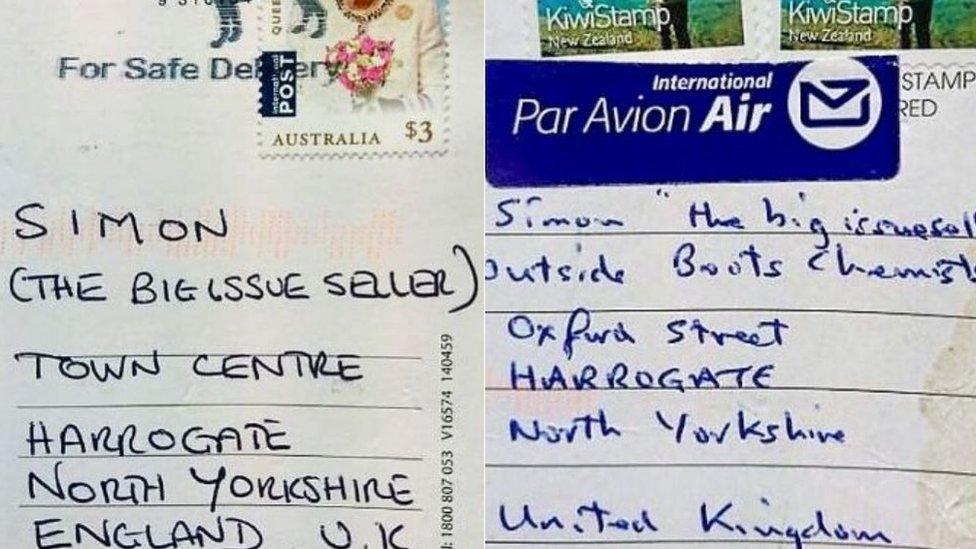 For Safe Delivery
International
POST
AUSTRALIA $3
SIMON
(THE BIG ISSUE SELLER)
TOWN CENTRE
HARROGATE
NORTH YORKSHIRE
ENGLAND U.K
1800 807 053 V16574 140459
KiwiStamp
New Zealand
KiwiStamp
New Zealand
International
Par Avion Air
STAMP
RED
Simon "the big issue sell
outside Boots Chemists
Oxford Street
HARROGATE
North Yorkshire
United Kingdom